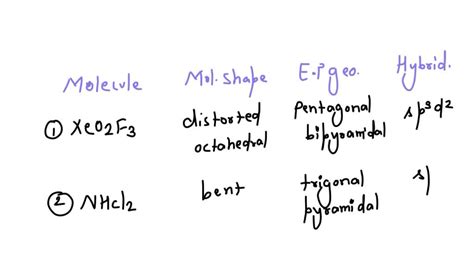 Molecule Mol. shape E.P geo. Hybrid.
① XeO2F3 distorted octahedral pentagonal bipyramidal sp³d²
② NHCl2 bent trigonal pyramidal